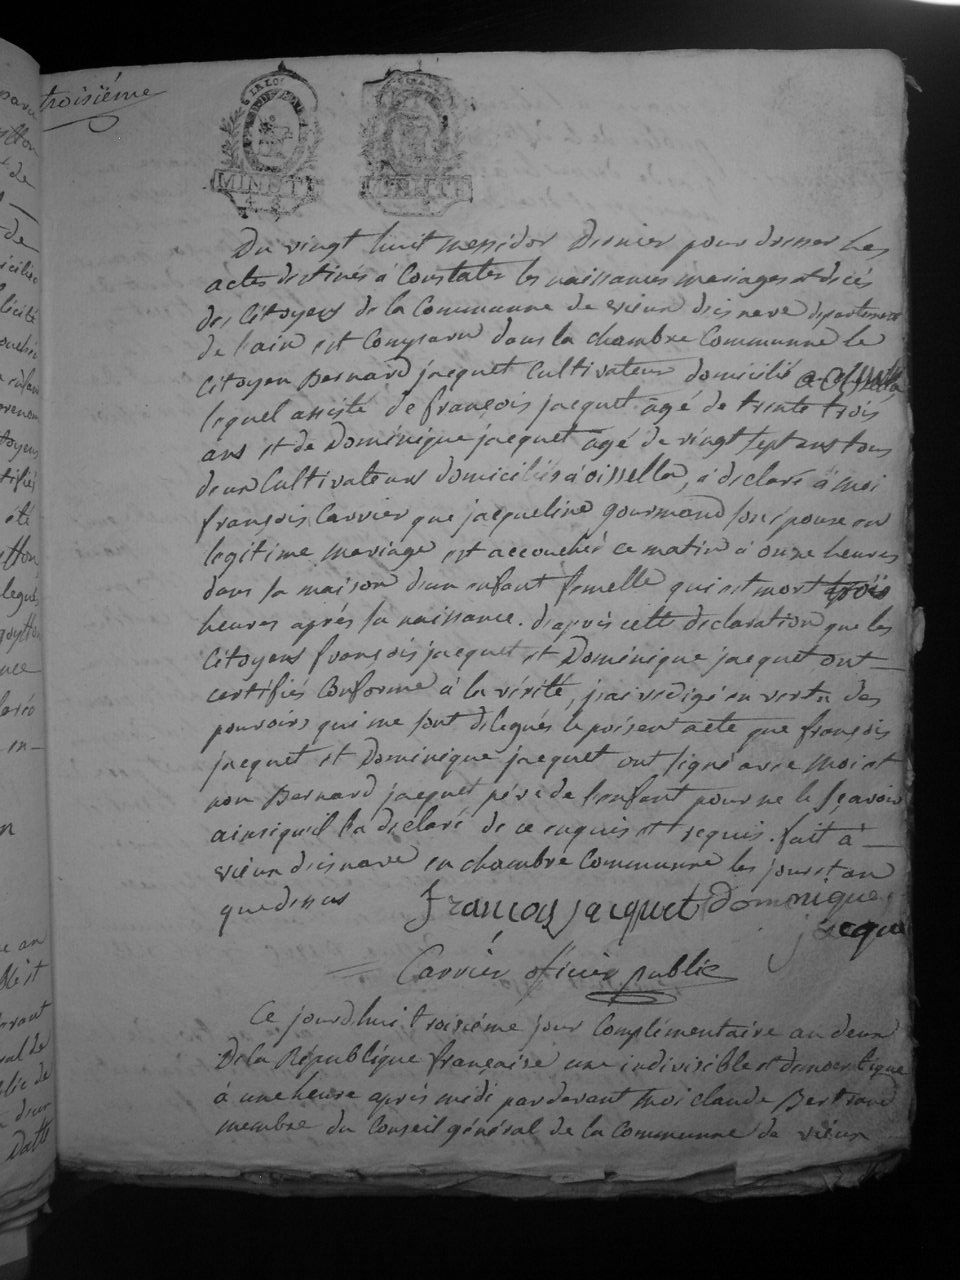 troisiéme
MINUTE
Du vingt huit messidor Dernier pour dresser Les
actes destinés à Constater les naissances mariages et decés
des Citoyens de la Commune de vieux disnave departement
de l'ain est Comparu dans la chambre Commune le
Citoyen Bernard jacquet Cultivateur domicilié a oissella
lequel assisté de françois jacquet âgé de trente trois
ans et de Doménique jacquet âgé de vingt sept ans tous
deux Cultivateurs domiciliés à oissella, a declaré à moi
françois Carrier que jacqueline gourmand son épouse en
legitime mariage est accouchée ce matin à onze heures
dans sa maison d'un enfant femelle qui est mort trois
heures aprés sa naissance. d'aprés cette declaration que les
Citoyens françois jacquet et Doménique jacquet ont
certifiés Conforme à la vérité, j'ai redigé en vertu des
pouvoirs qui me sont delegués le présent acte que françois
jacquet et Dominique jacquet ont signé avec moi et
non Bernard jacquet pére de l'enfant pour ne le sçavoir
ainsi qu'il l'a declaré de ce enquis et requis. fait à
vieux disnave en chambre Commune les jour et an
que dessus françois jacquet domenique
jacque
Carrier oficier public
Ce jourdhui troisiéme jour Complémentaire an deux
De la République française une indivisible et democratique
à une heure aprés midi pardevant moi claude Bertrand
membre du Conseil général de la Commune de vieux